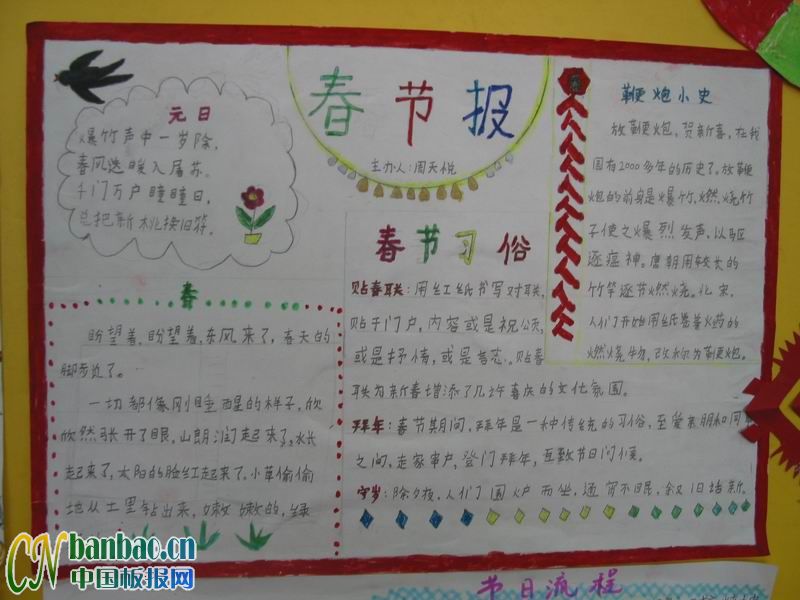 春节报
主办人:周天悦
元日
爆竹声中一岁除,
春风送暖入屠苏。
千门万户曈曈日,
总把新桃换旧符。
春
盼望着,盼望着,东风来了,春天的
脚步近了。
一切都像刚睡醒的样子,欣
欣然张开了眼。山朗润起来了,水长
起来了,太阳的脸红起来了。小草偷偷
地从土里钻出来,嫩嫩的,绿
春节习俗
贴春联:用红纸书写对联,
贴于门户,内容或是祝颂,
或是抒情,或是言志。贴春
联为新春增添了几许喜庆的文化氛围。
拜年:春节期间,拜年是一种传统的习俗,至爱亲朋和同
之间,走家串户,登门拜年,互致节日问候。
守岁:除夕夜,人们围炉而坐,通宵不眠,叙旧话新。
鞭炮小史
放鞭炮,贺新喜,在我
国有2000多年的历史了。放鞭
炮的前身是爆竹,燃烧竹
子使之爆烈发声,以驱
逐瘟神。唐朝用较长的
竹竿逐节燃烧。北宋,
人们开始用纸卷着火药的
燃烧物,改称为鞭炮。
节日流程
CNbanbao.cn
中国板报网